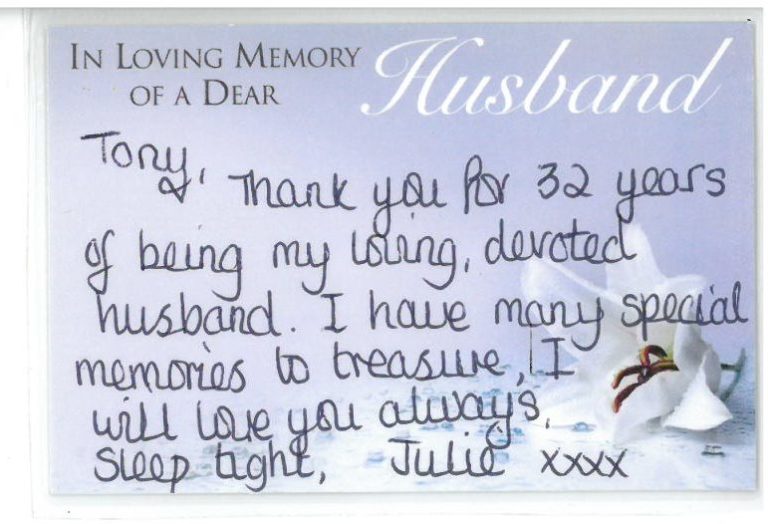 IN LOVING MEMORY
OF A DEAR Husband
Tony, Thank you for 32 years
of being my loving, devoted
husband. I have many special
memories to treasure, I
will love you always.
Sleep tight, Julie xxxx